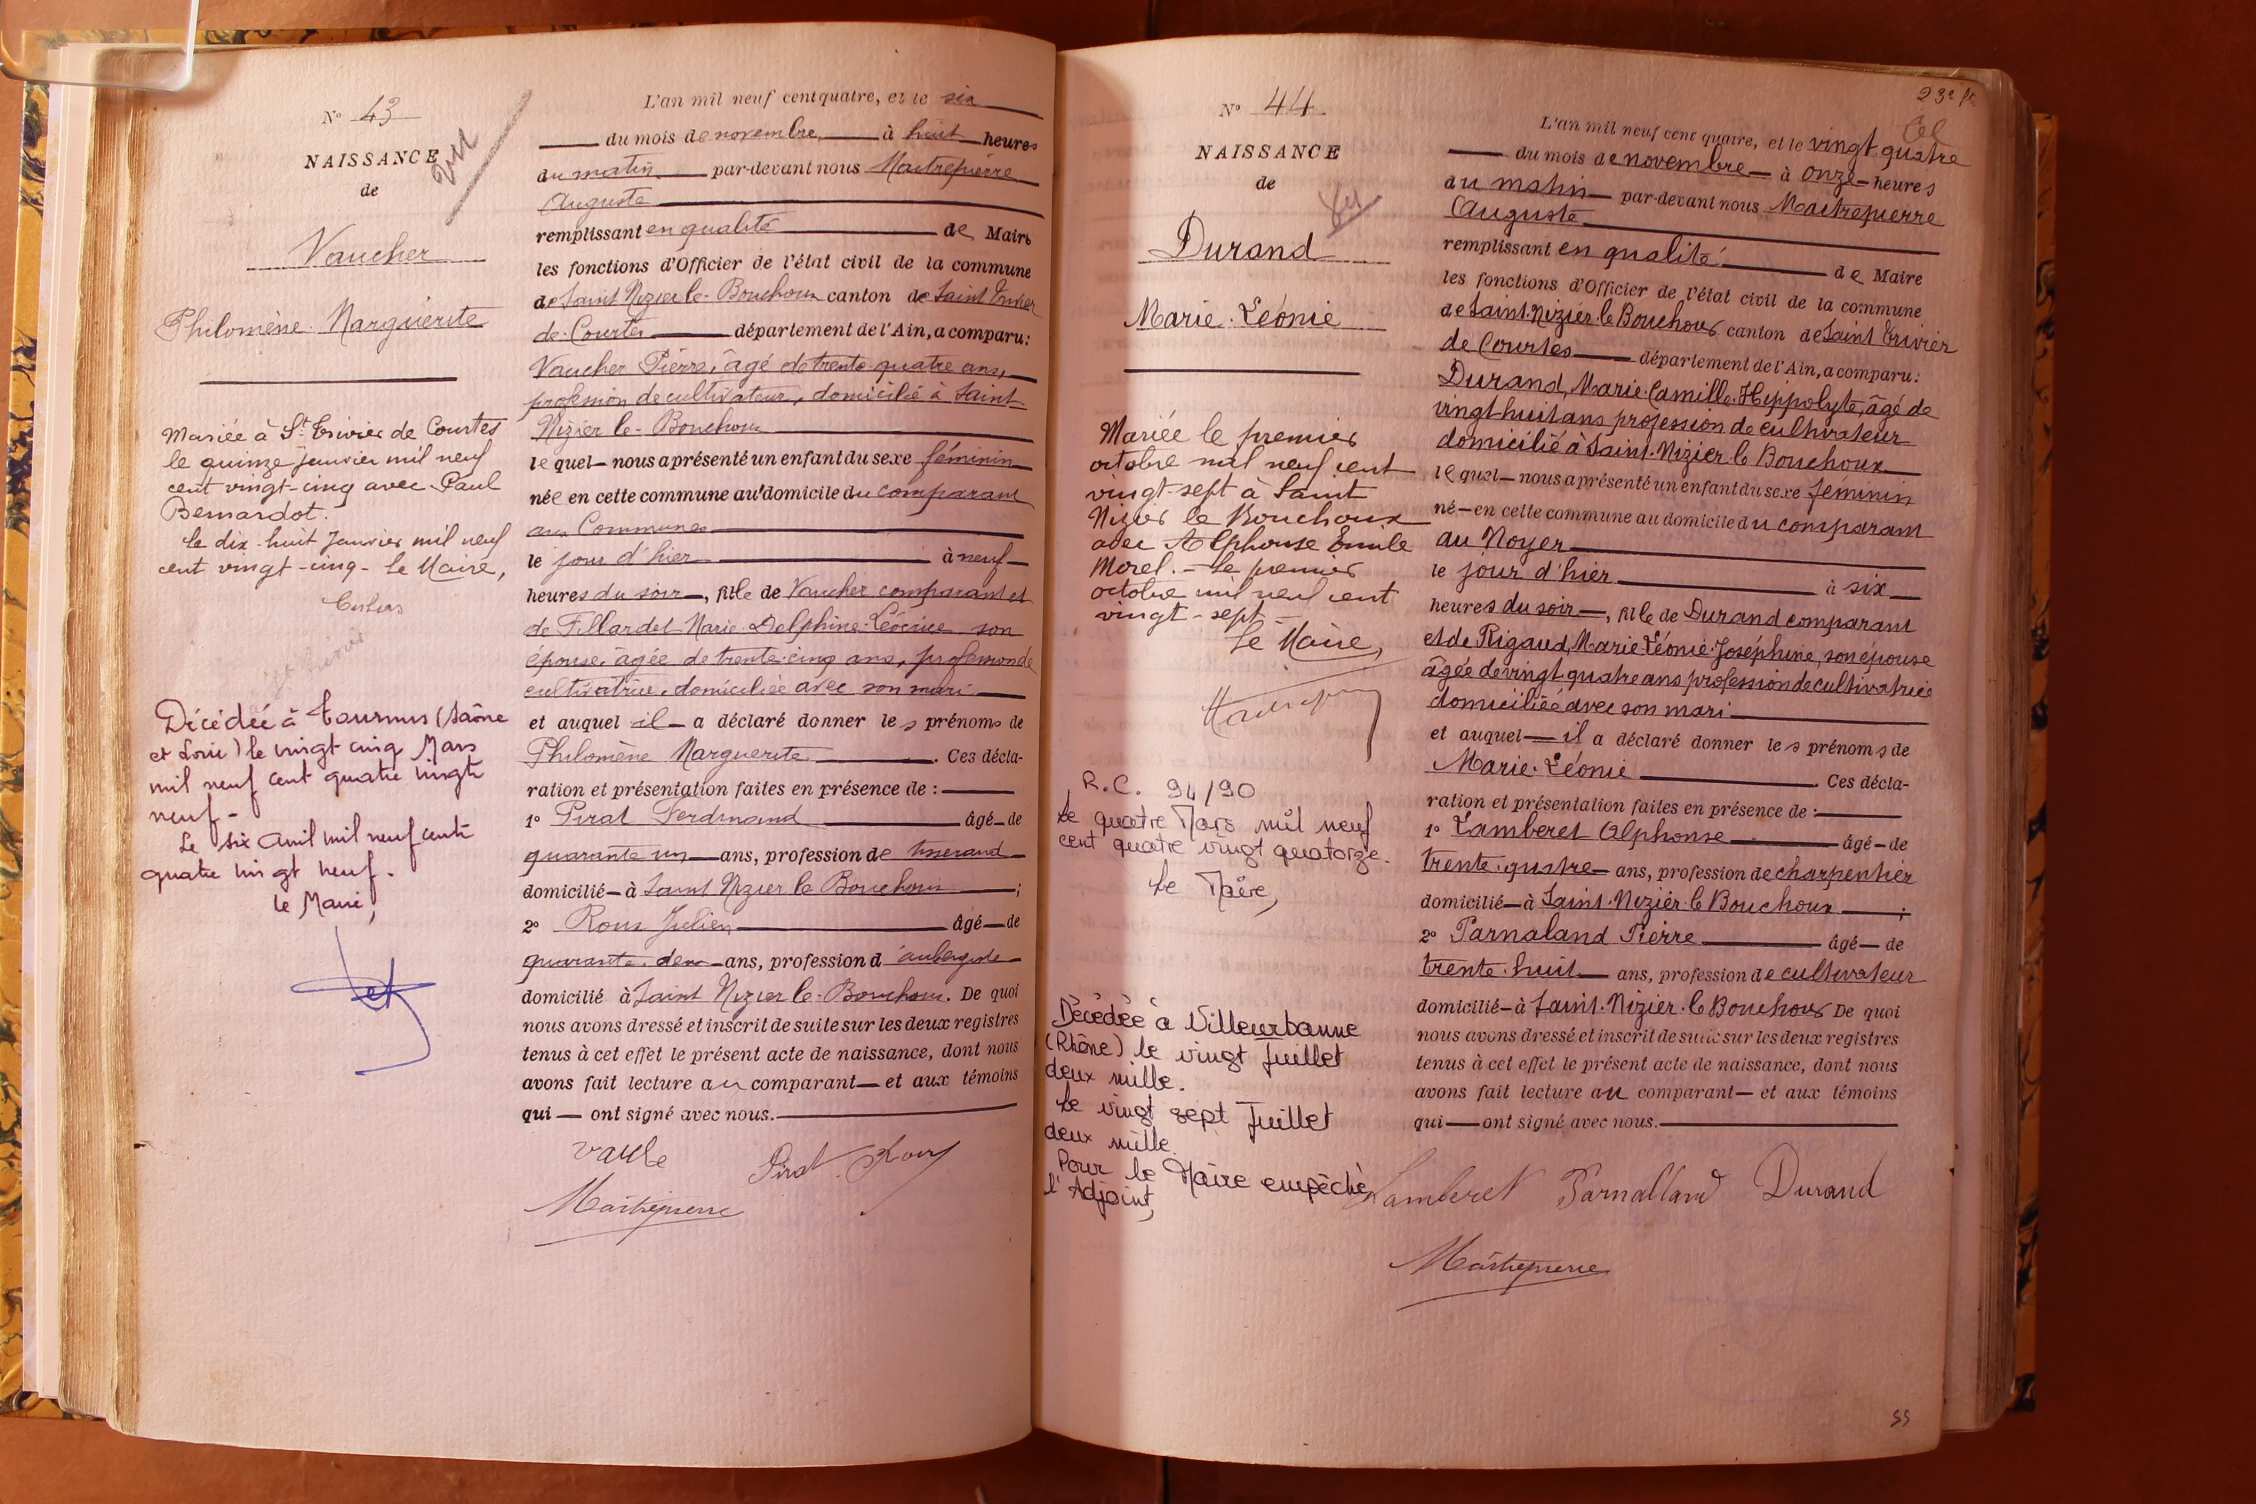 N° 43
NAISSANCE
de
Vaucher
Philomène Marguerite
Mariée à St Trivier de Courtes
le quinze Janvier mil neuf
cent vingt-cinq avec Paul
Bernardot.
le dix-huit Janvier mil neuf
cent vingt-cinq - Le Maire,
Décédée à Tournus (Saône
et Loire) le vingt cinq Mars
mil neuf cent quatre vingt
neuf -
Le six avril mil neuf cent
quatre vingt neuf.
le Maire,
Vu
L'an mil neuf cent quatre, et le six
du mois de novembre à huit heures
du matin par-devant nous Maitrepierre
Auguste
remplissant en qualité de Maire
les fonctions d'Officier de l'état civil de la commune
de Saint Nizier le-Bouchoux canton de Saint Trivier
de Courtes département de l'Ain, a comparu:
Vaucher Pierre, âgé de trente quatre ans,
profession de cultivateur, domicilié à Saint-
Nizier le-Bouchoux
lequel nous a présenté un enfant du sexe féminin
née en cette commune au domicile du comparant
aux Communes
le jour d'hier à neuf
heures du soir, fille de Vaucher comparant et
de Fillardet Marie Delphine son
épouse, âgée de trente-cinq ans, profession de
cultivatrice, domiciliée avec son mari
et auquel il a déclaré donner les prénoms de
Philomène Marguerite. Ces décla-
ration et présentation faites en présence de :
1° Pirat Ferdinand âgé de
quarante un ans, profession de tisserand
domicilié à Saint Nizier le Bouchoux ;
2° Roux Julien âgé de
quarante deux ans, profession d'aubergiste
domicilié à Saint Nizier le-Bouchoux. De quoi
nous avons dressé et inscrit de suite sur les deux registres
tenus à cet effet le présent acte de naissance, dont nous
avons fait lecture au comparant et aux témoins
qui ont signé avec nous.
Pirat Roux
Maitrepierre
N° 44
NAISSANCE
de
Durand
Marie Léonie
Mariée le premier
octobre mil neuf cent
vingt-sept à Saint
Nizier le Bouchoux
avec Alphonse Emile
Morel. - Le premier
octobre mil neuf cent
vingt-sept
Le Maire,
R.C. 94/90
Le quatre Mars mil neuf
cent quatre vingt quatorze.
Le Maire,
Décédée à Villeurbanne
(Rhône) le vingt Juillet
deux mille.
Le vingt sept Juillet
deux mille.
Pour le Maire empêché
l'Adjoint,
L'an mil neuf cent quatre, et le vingt quatre
du mois de novembre à onze heures
du matin par-devant nous Maitrepierre
Auguste
remplissant en qualité de Maire
les fonctions d'Officier de l'état civil de la commune
de Saint-Nizier-le Bouchoux canton de Saint Trivier
de Courtes département de l'Ain, a comparu:
Durand, Marie-Camille-Hippolyte, âgé de
vingt-huit ans profession de cultivateur
domicilié à Saint-Nizier le Bouchoux
lequel nous a présenté un enfant du sexe féminin
né en cette commune au domicile du comparant
au Noyer
le jour d'hier à six
heures du soir, fille de Durand comparant
et de Rigaud, Marie-Léonie-Joséphine, son épouse
âgée de vingt-quatre ans profession de cultivatrice
domiciliée avec son mari
et auquel il a déclaré donner les prénoms de
Marie-Léonie. Ces décla-
ration et présentation faites en présence de :
1° Lamberet Alphonse âgé de
trente-quatre ans, profession de charpentier
domicilié à Saint-Nizier-le Bouchoux ;
2° Parnaland Pierre âgé de
trente-huit ans, profession de cultivateur
domicilié à Saint-Nizier-le Bouchoux De quoi
nous avons dressé et inscrit de suite sur les deux registres
tenus à cet effet le présent acte de naissance, dont nous
avons fait lecture au comparant et aux témoins
qui ont signé avec nous.
Lamberet Parnalland Durand
Maitrepierre
55